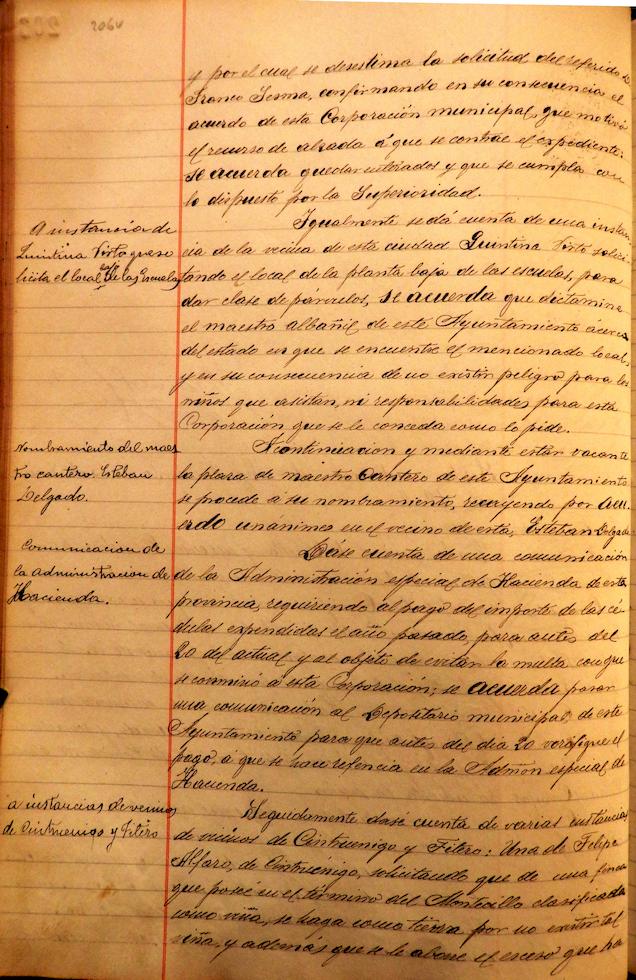 206v
y por el cual se desestima la solicitud del referido
Franco Sesma, confirmando en su consecuencia el
acuerdo de esta Corporación municipal, que motivó
el recurso de alzada á que se contrae el expediente:
se acuerda quedar enterados y que se cumpla con
lo dispuesto por la Superioridad.
A instancia de
Quintina Virto que so
licita el local de las Escuelas
Igualmente se dá cuenta de una instan
cia de la vecina de esta ciudad Quintina Virto solici
tando el local de la planta baja de las escuelas, para
dar clase de párvulos, se acuerda que dictamine
el maestro albañil de este Ayuntamiento acerca
del estado en que se encuentre el mencionado local,
y en su consecuencia de no existir peligro para los
niños que asistan, ni responsabilidades para esta
Corporación que se le conceda como lo pide.
Nombramiento del maes
tro cantero Esteban
Delgado.
Acontinuacion y mediante estar vacante
la plaza de maestro Cantero de este Ayuntamiento
se procede á su nombramiento, recayendo por acu-
erdo unánime en el vecino de esta, Esteban Delgado
Comunicacion de
la administracion de
Hacienda.
Dáse cuenta de una comunicación
de la Administración especial de Hacienda de esta
provincia, requiriendo al pago del importe de las cé
dulas expendidas el año pasado, para antes del
20 del actual y al objeto de evitar la multa con que
se conminó a esta Corporación; se acuerda pasar
una comunicación al Depositario municipal de este
Ayuntamiento para que antes del dia 20 verifique el
pago, á que se hace refencia en la Admón especial de
Hacienda.
a instancias de vecinos
de Cintruenigo y Fitero
Seguidamente dase cuenta de varias instancias
de vecinos de Cintruénigo y Fitero: Una de Felipe
Alfaro, de Cintruénigo, solicitando que de una finca
que posee en el término del Montecillo clasificada
como viña, se haga como tierra, por no existir tal
viña, y además que se le abone el exceso que ha